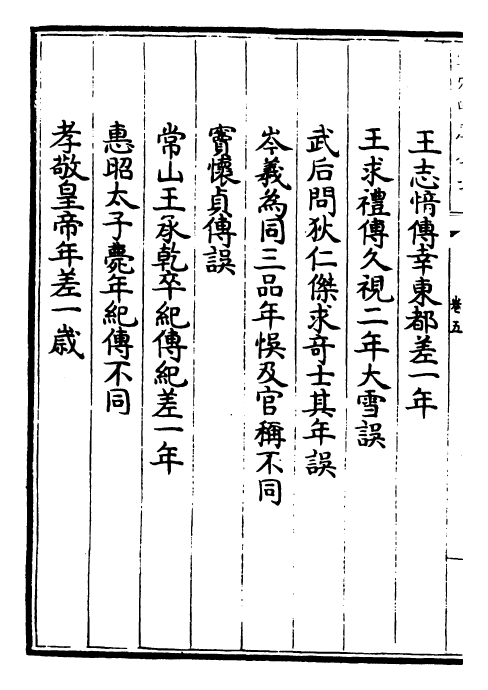 王志愔傳幸東都差一年
王求禮傳久視二年大雪誤
武后問狄仁傑求奇士其年誤
岑羲為同三品年悞及官稱不同
竇懷貞傳誤
常山王承乾卒紀傳紀差一年
惠昭太子薨年紀傳不同
孝敬皇帝年差一歲
卷五